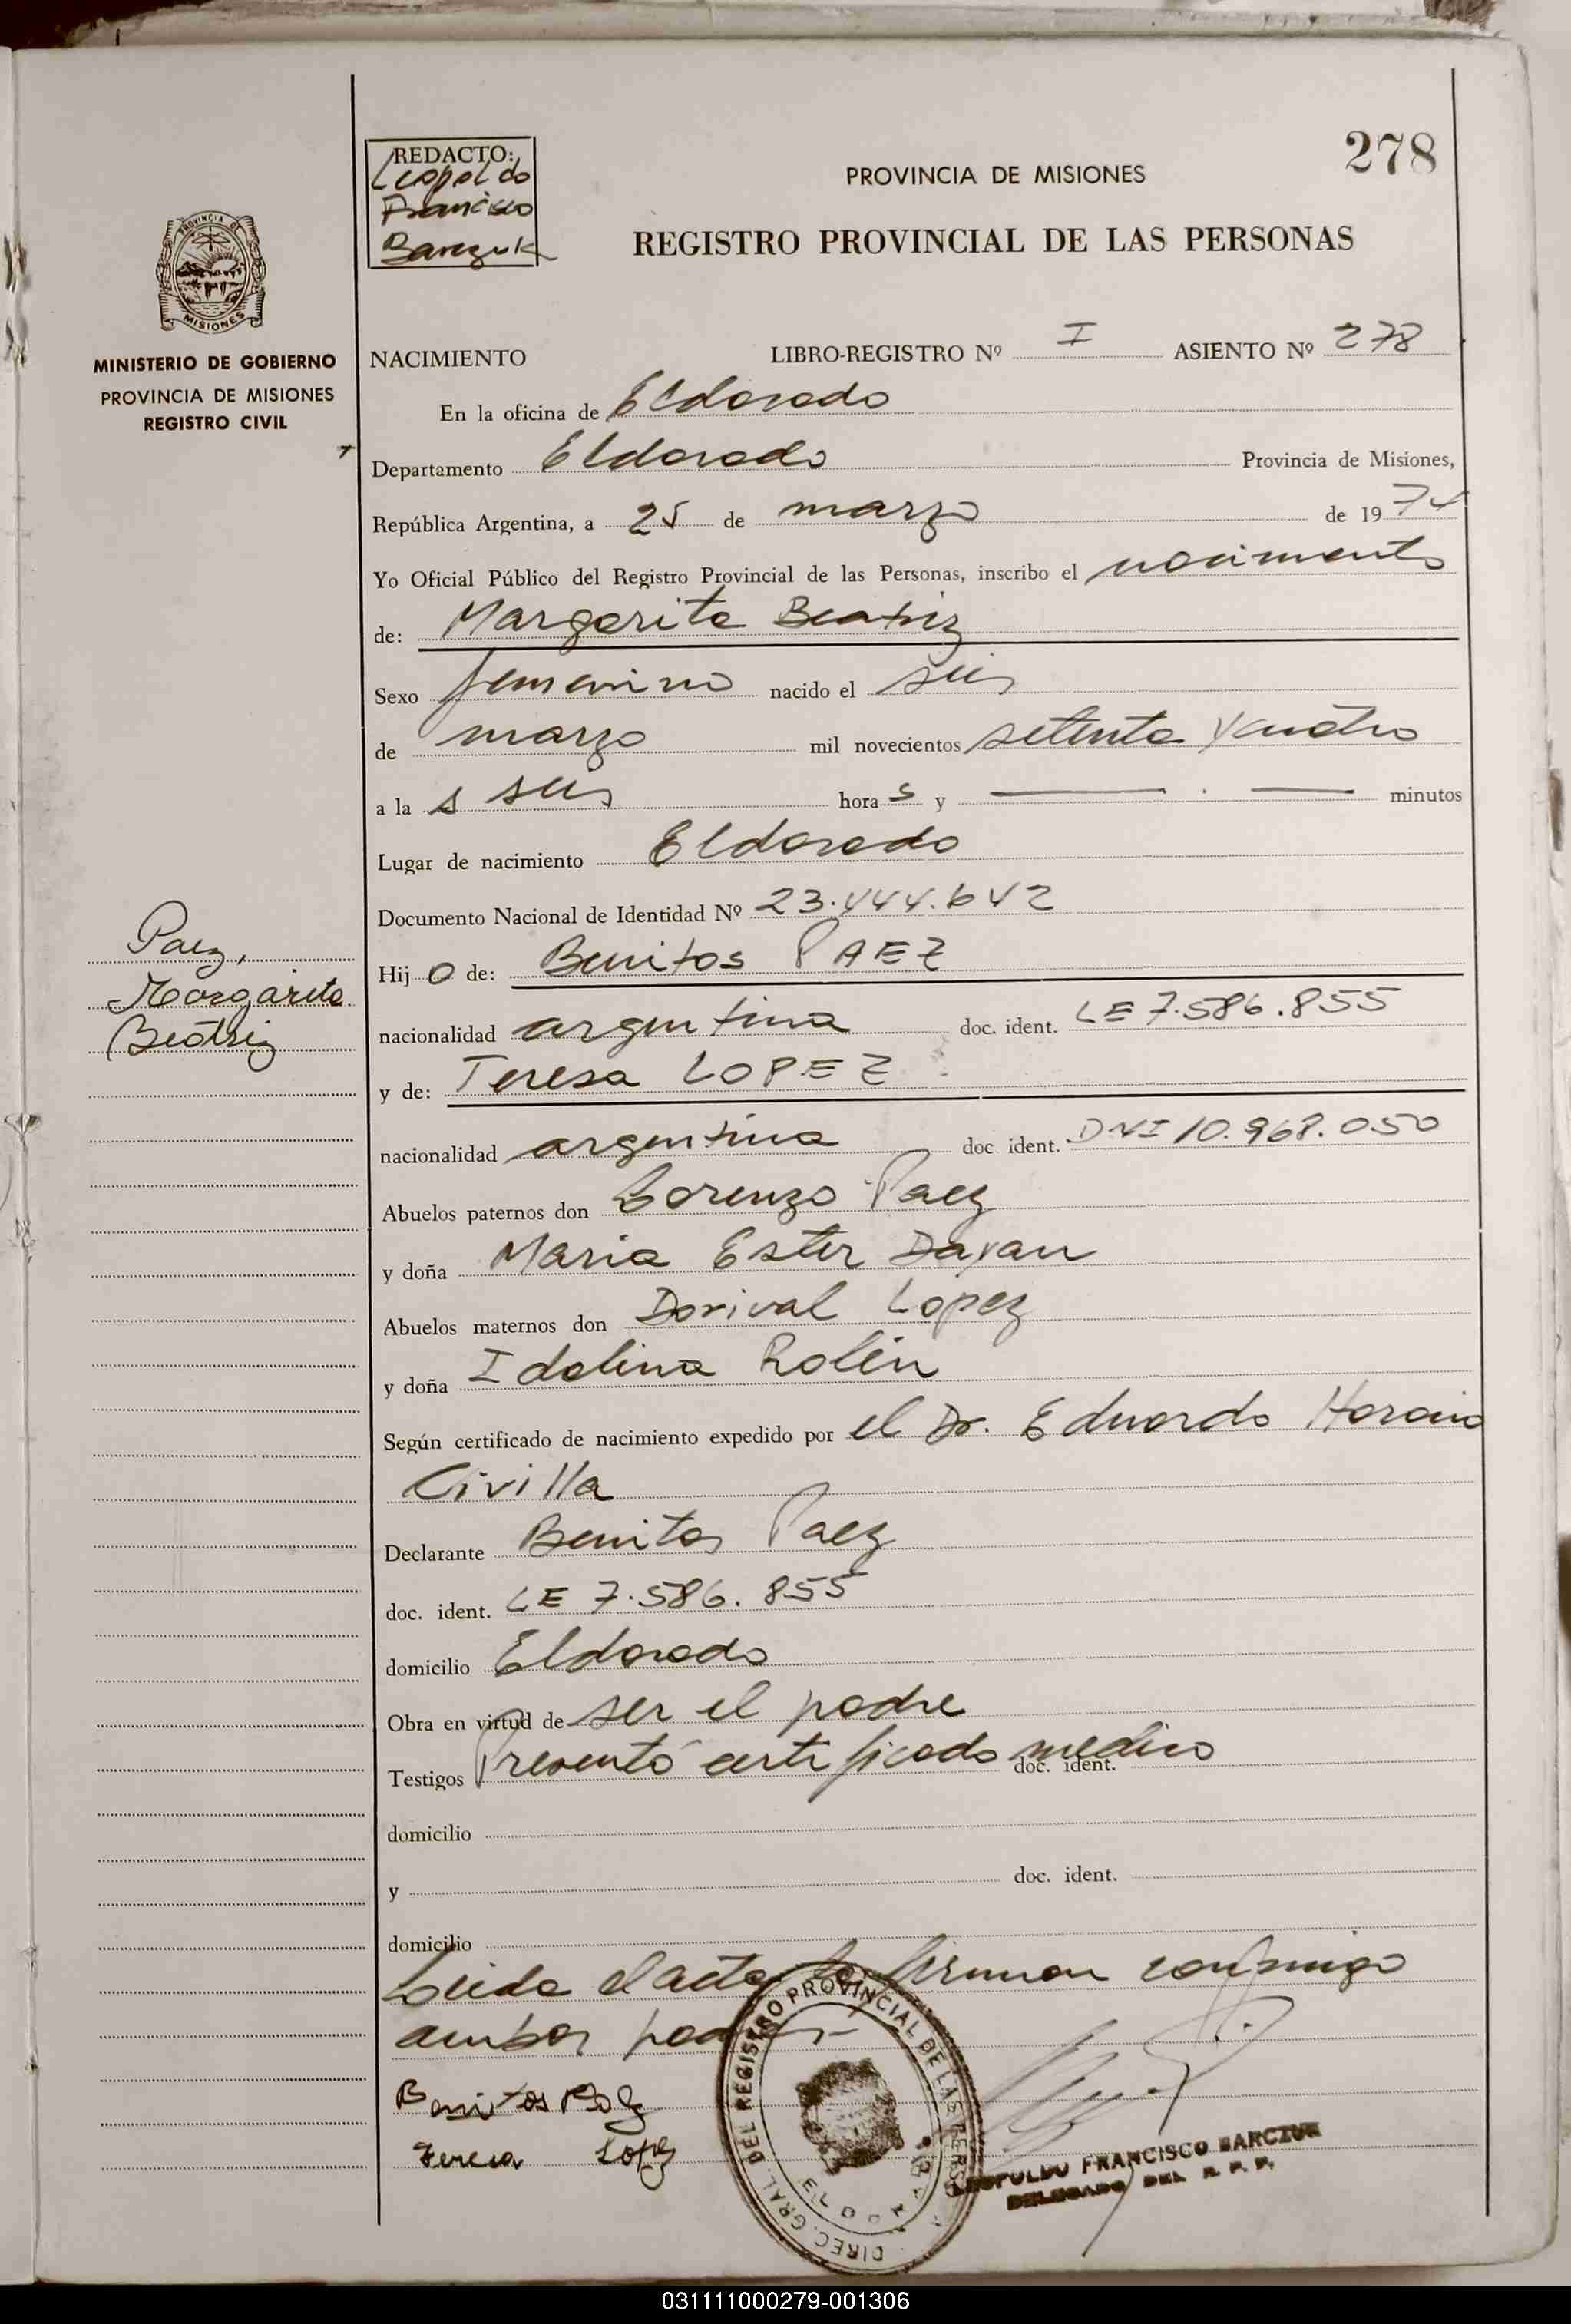 278
REDACTO:
Leopoldo
Francisco
Barczuk
PROVINCIA DE MISIONES
REGISTRO PROVINCIAL DE LAS PERSONAS
PROVINCIA DE
MISIONES
MINISTERIO DE GOBIERNO
PROVINCIA DE MISIONES
REGISTRO CIVIL
NACIMIENTO LIBRO-REGISTRO Nº I ASIENTO Nº 278
En la oficina de Eldorado
Departamento Eldorado Provincia de Misiones,
República Argentina, a 25 de marzo de 1974
Yo Oficial Público del Registro Provincial de las Personas, inscribo el nacimiento
de: Margarita Beatriz
Sexo femenino nacido el seis
de marzo mil novecientos setenta y cuatro
a la s seis hora s y — . — minutos
Lugar de nacimiento Eldorado
Documento Nacional de Identidad Nº 23.444.642
Paez,
Margarita
Beatriz
Hij o de: Benitos PAEZ
nacionalidad argentina doc. ident. LE 7.586.855
y de: Teresa LOPEZ
nacionalidad argentina doc ident. DNI 10.968.050
Abuelos paternos don Lorenzo Paez
y doña Maria Ester Dayan
Abuelos maternos don Dorival Lopez
y doña Idalina Rolin
Según certificado de nacimiento expedido por el Dr. Eduardo Horacio
Civilla
Declarante Benitos Paez
doc. ident. LE 7.586.855
domicilio Eldorado
Obra en virtud de ser el padre
Testigos Presentó certificado medico doc. ident.
domicilio
y doc. ident.
domicilio
Leida el acta la firman conmigo
ambos padres-
Benitos Paez
Teresa Lopez
DIREC. GRAL. DEL REGISTRO PROVINCIAL DE LAS PERS
LEOPOLDO FRANCISCO BARCZUK
DELEGADO DEL R. P. P.
031111000279-001306